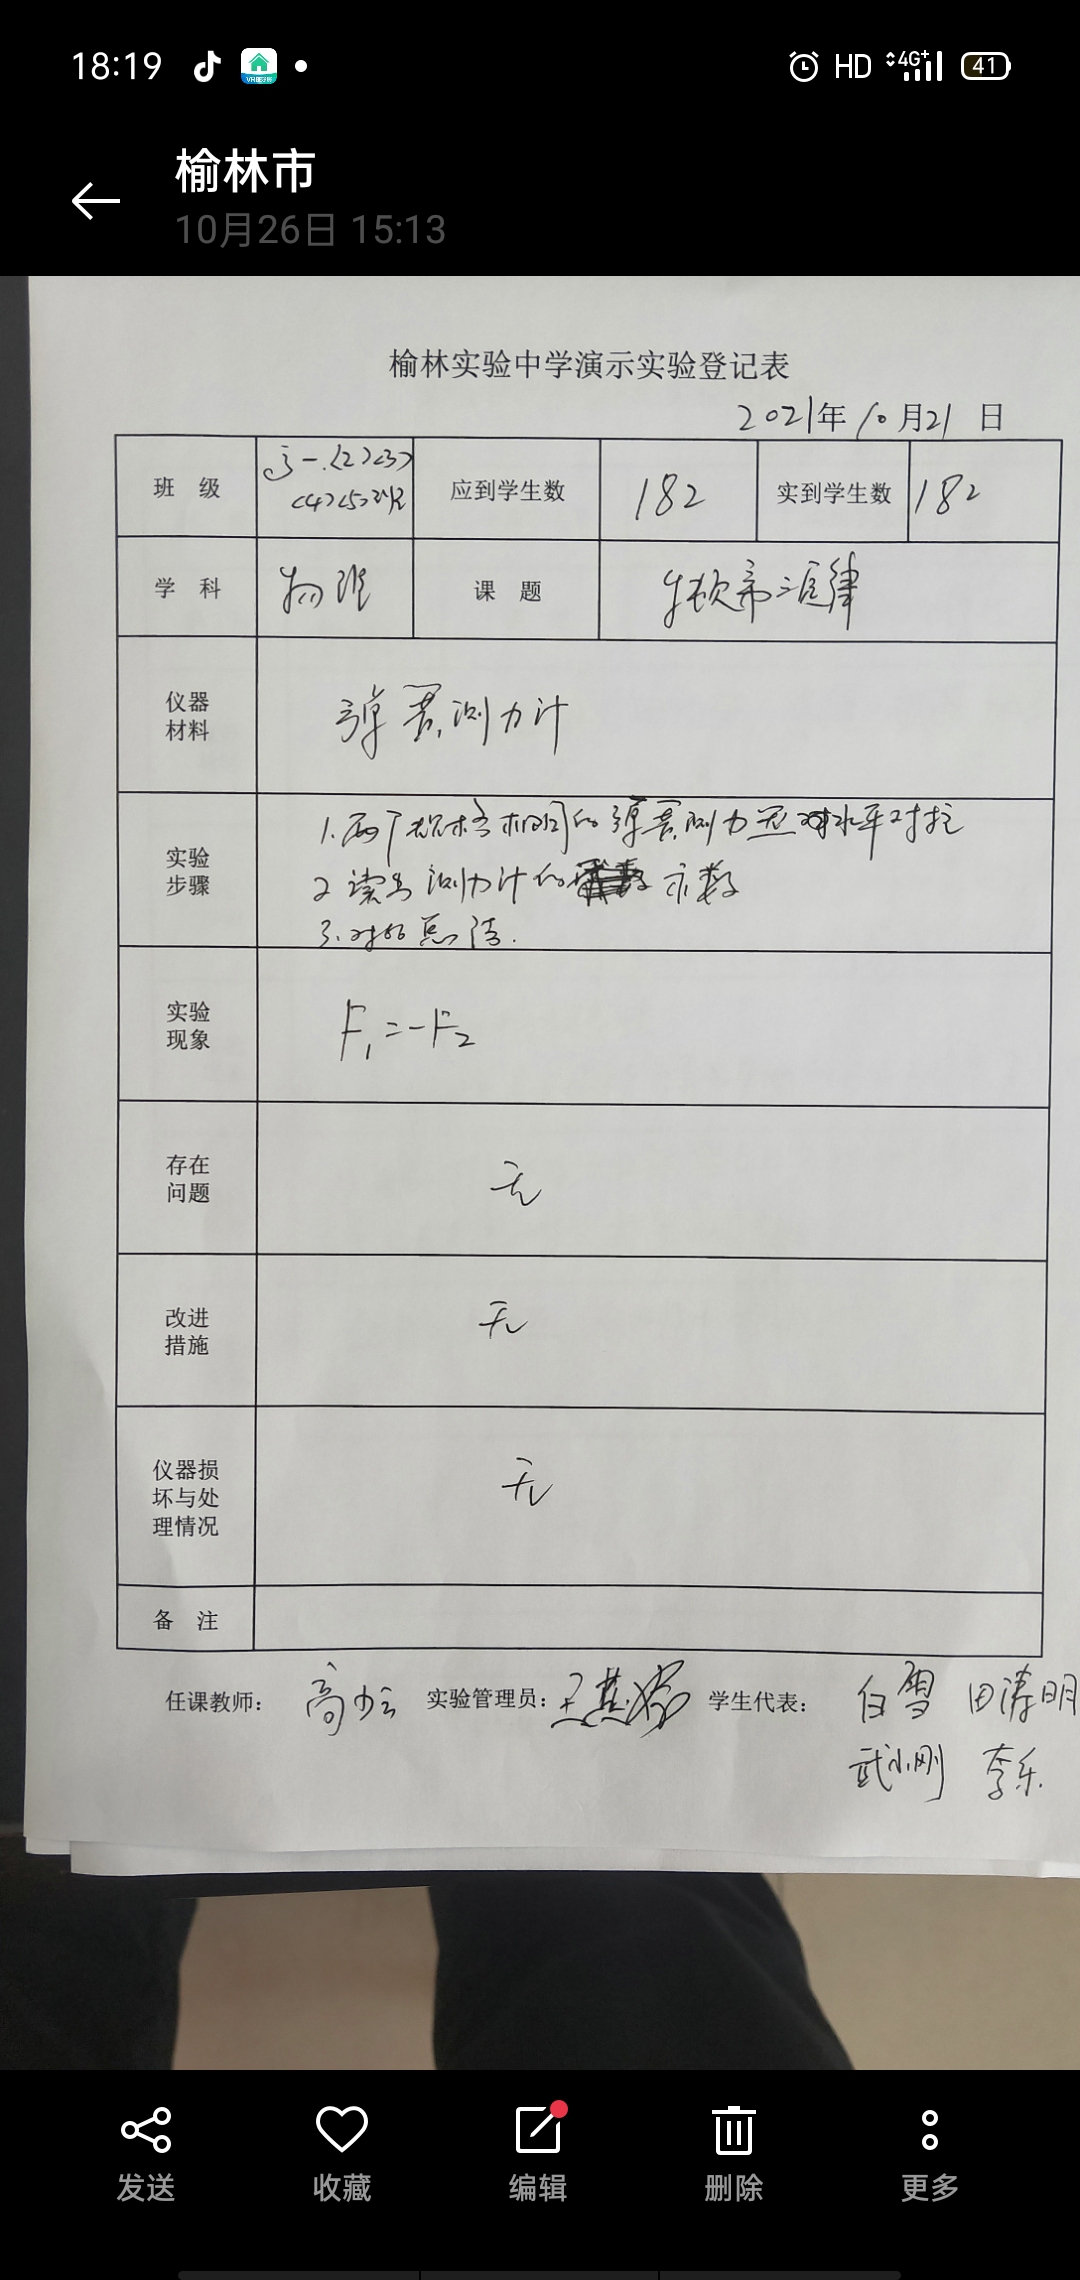 18:19 HD 4G+ 41
榆林市
10月26日 15:13
榆林实验中学演示实验登记表
2021年10月21日
班 级 高一.<2><3> 应到学生数 182 实到学生数 182
<4><5>班
学 科 物理 课 题 牛顿第三定律
仪器 弹簧测力计
材料
实验 1.两个规格相同的弹簧测力 水平对拉
步骤 2 读出测力计的 示数
3.对
实验 F₁=-F₂
现象
存在 无
问题
改进 无
措施
仪器损 无
坏与处
理情况
备 注
任课教师: 高 实验管理员: 王 学生代表: 白雪 田涛明
武小刚 李乐
发送 收藏 编辑 删除 更多